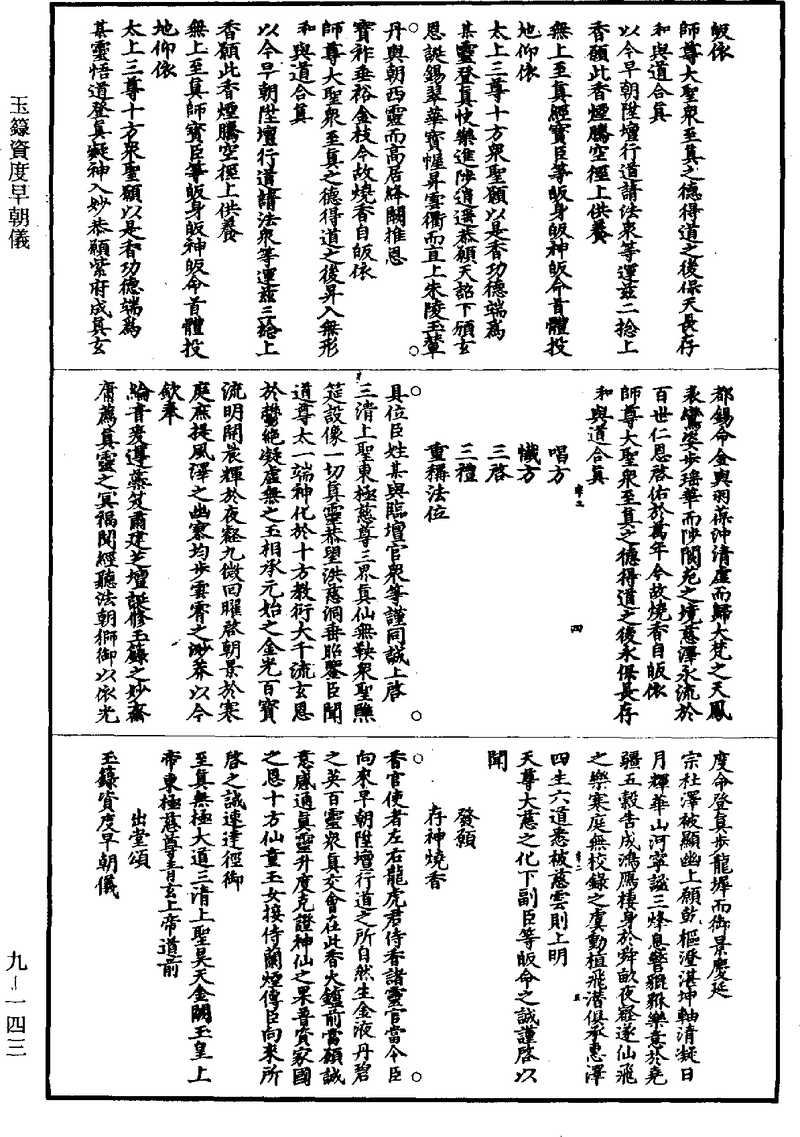 玉籙資度早朝儀
皈依
師尊大聖衆至真之德得道之後保天長存
和與道合真
以今早朝陞壇行道請法衆等運茲二捻上
香願此香煙騰空徑上供養
無上至真經寶臣等皈身皈神皈命首體投
地仰依
太上三尊十方衆聖願以是香功德端爲
某靈登真快樂進陟逍遥恭願天詔下頒玄
恩誕錫翠華寶幄昇雲衢而直上朱陵玉輦
丹輿朝西靈而高居絳闕推恩
寶祚垂裕金枝今故燒香自皈依
師尊大聖衆至真之德得道之後昇入無形
和與道合真
以今早朝陞壇行道請法衆等運茲三捻上
香願此香煙騰空徑上供養
無上至真師寶臣等皈身皈神皈命首體投
地仰依
太上三尊十方衆聖願以是香功德端爲
某靈悟道登真凝神入妙恭願紫府成真玄
都錫命金輿羽葆沖清虛而歸大梵之天鳳
表鸞姿步瑤華而陟閬苑之境慈澤永流於
百世仁恩啓佑於萬年今故燒香自皈依
師尊大聖衆至真之德得道之後永保長存
和與道合真
唱方
懺方
三啓
三禮
重稱法位
具位臣姓某與臨壇官衆等謹同誠上啓
三清上聖東極慈尊三界真仙無鞅衆聖醮
筵設像一切真靈恭望洪慈洞垂昭鑒臣聞
道尊太一端神化於十方教衍大千流玄恩
於嶅絕凝虛無之玉相承元始之金光百寶
流明開宸輝於夜壑九微回曜啓朝景於寒
庭庶提風澤之幽寥均步雲霄之渺莽以今
欽奉
綸音爰遵蕋笈肅建芝壇誕修玉籙之妙齋
庸薦真靈之冥福聞經聽法朝獅御以依光
度命登真步龍墀而御景慶延
宗社澤被顯幽上願乾樞澄湛坤軸清凝日
月輝華山河寧謐三烽息警貔貅樂意於堯
疆五穀告成鴻鴈棲身於舜畝夜壑遂仙飛
之樂寒庭無校錄之虞動植飛潛俱承惠澤
四生六道悉被慈雲則上明
天尊大慈之化下副臣等皈命之誠謹啓以
聞
發願
存神燒香
香官使者左右龍虎君侍香諸靈官當令臣
向來早朝陞壇行道之所自然生金液丹碧
之英百靈衆真交會在此香火鑪前當願誠
意感通真靈升度克證神仙之果普資家國
之恩十方仙童玉女接侍蘭煙傳臣向來所
啓之誠速達徑御
至真無極大道三清上聖昊天金闕玉皇上
帝東極慈尊青玄上帝道前
出堂頌
玉籙資度早朝儀
四
九－一四三